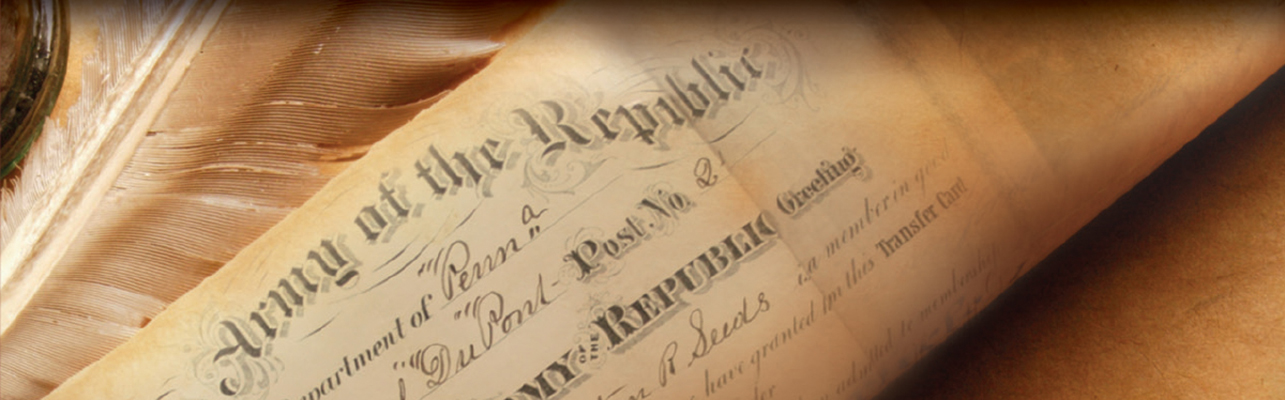 Army of the Republic
partment of "Penna"
"Du Pont" Post No. 2
MY OF THE REPUBLIC Greeting
R Seeds is a member in good
have granted him this Transfer Card
admitted to membership